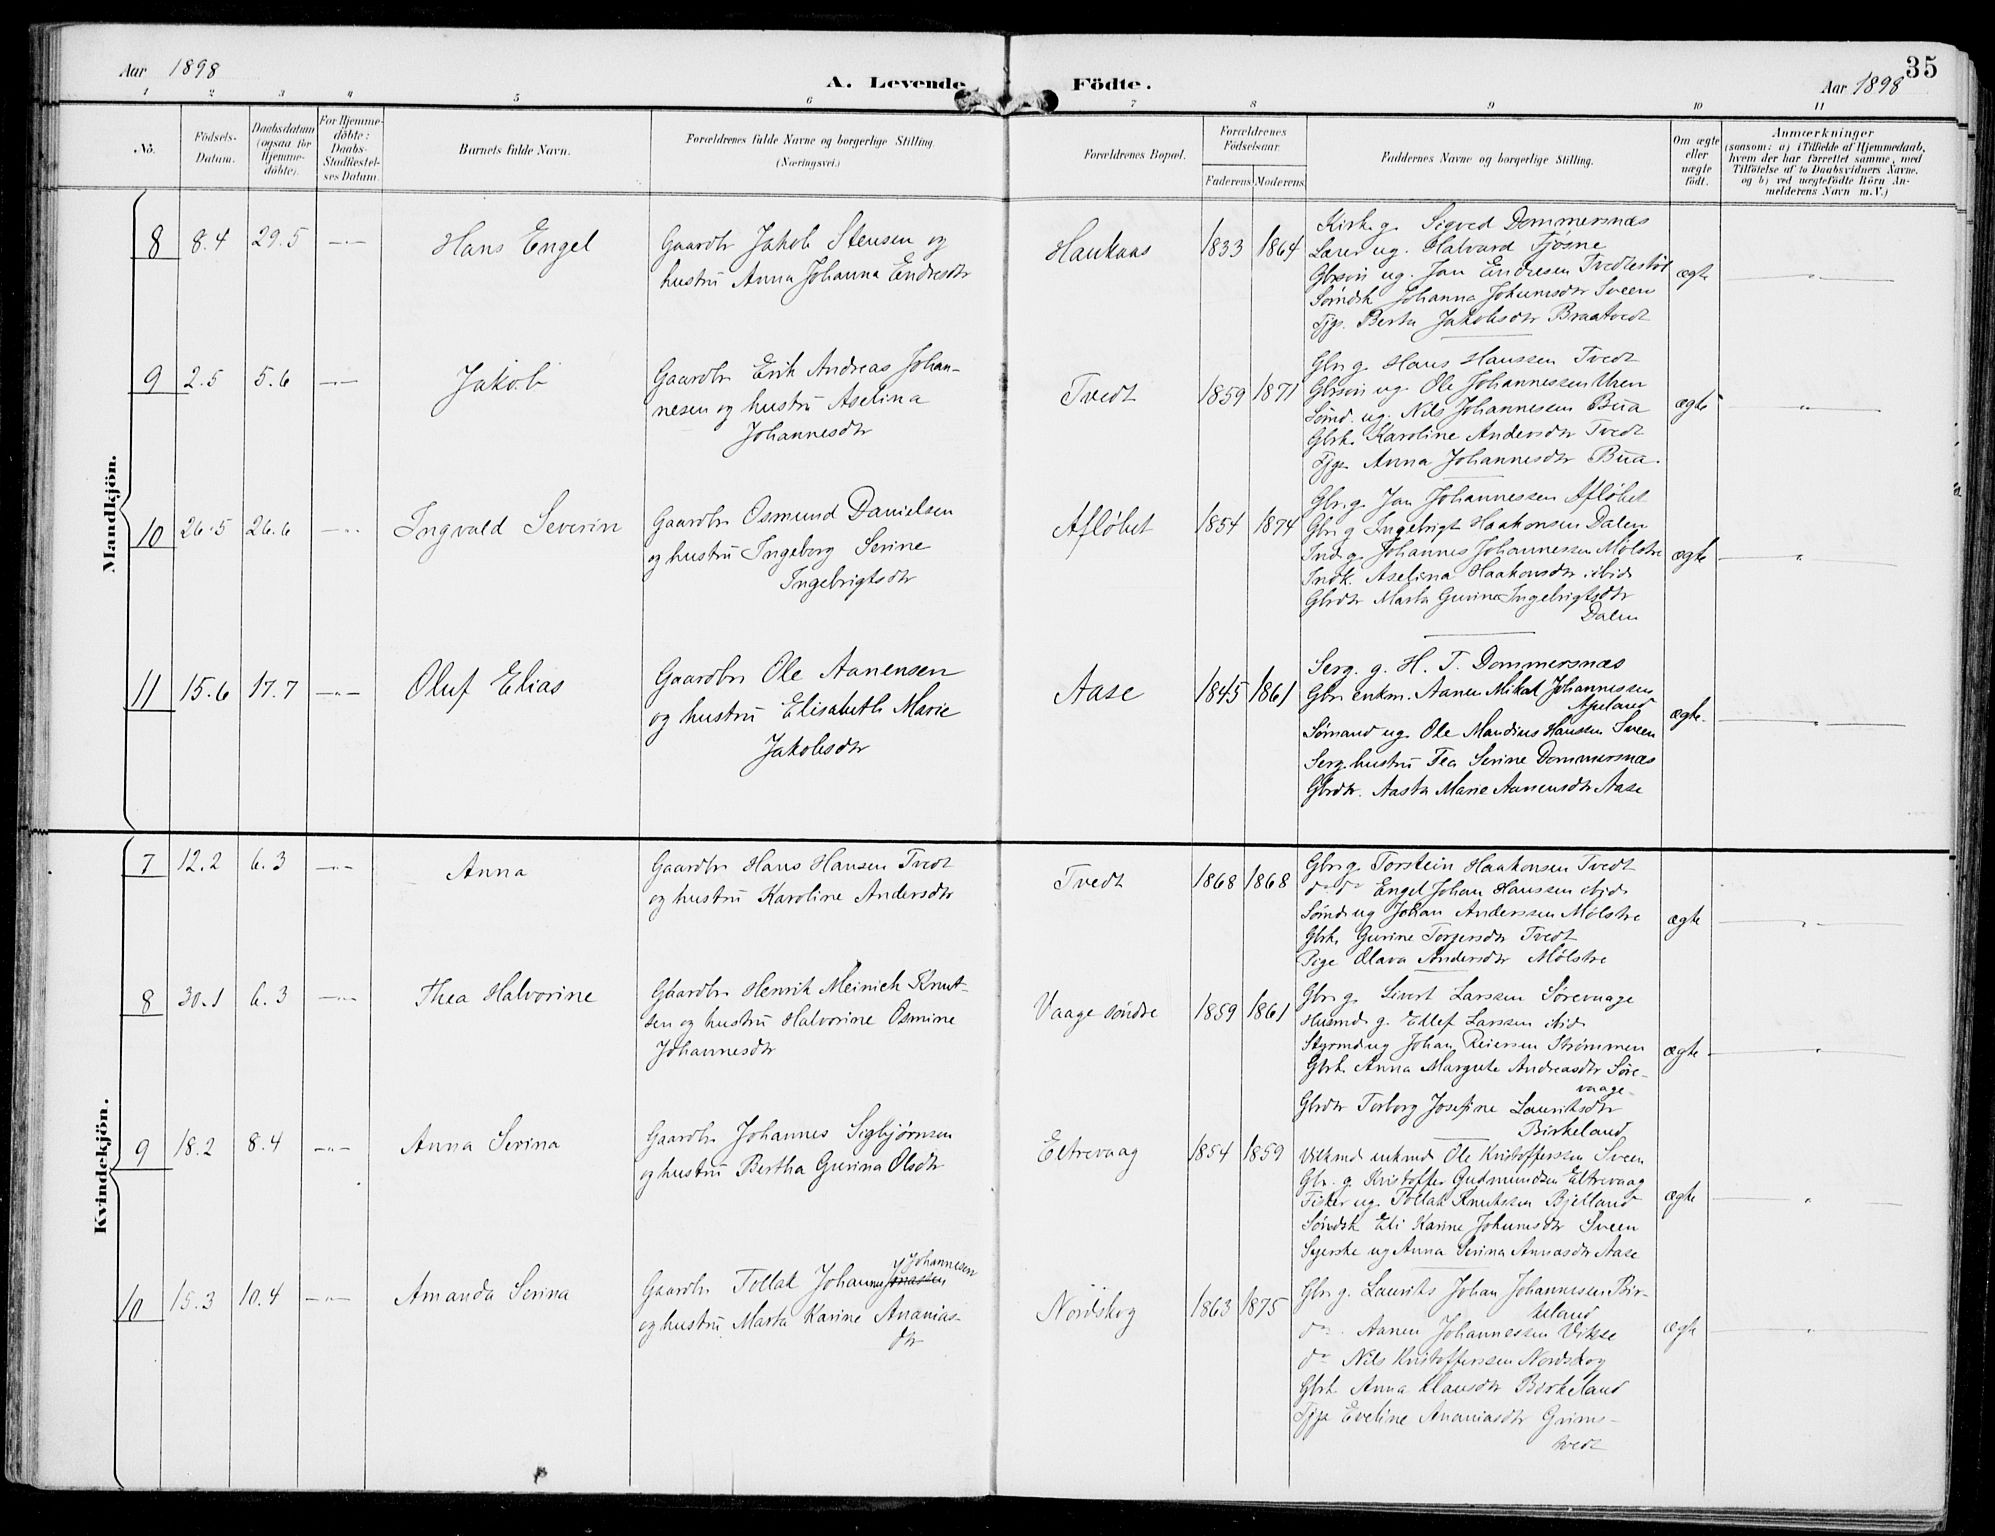 Aar 1898
A. Levende Födte.
Aar 1898
35
1 2 3 4 5 6 7 8 9 10 11
No.
Födsels-Datum.
Daabsdatum (ogsaa for Hjemme-döbte).
For Hjemme-döbte: Daabs-Stadfæstel-ses Datum.
Barnets fulde Navn.
Forældrenes fulde Navne og borgerlige Stilling.
(Næringsvei.)
Forældrenes Bopæl.
Forældrenes Födselsaar.
Faderens Moderens
Faddernes Navne og borgerlige Stilling.
Om ægte eller uægte födt.
Anmærkninger
(saasom: a) i Tilfælde af Hjemmedaab,
hvem der har forrettet samme, med
Tilföielse af to Daabsvidners Navne.
og b) ved uægtefödte Börn An-
melderens Navn m. V.)
Mandkjön.
8 8.4 29.5 -"- Hans Engel
Gaardbr Jakob Stensen og
hustru Anna Johanna Endresdtr
Haukaas 1833 1864
Kirk. g. Sigved Dommersnæs
Lærer ug. Halvard Tjösne
Gbrsøn ug. Jan Endresen Tvedtestøl
Sømdsk Johanna Johannesdtr Sveen
Tjp. Berta Jakobsdtr Braatvedt
ægte "
9 2.5 5.6 -"- Jakob
Gaardbr Erik Andreas Johan-
nesen og hustru Aselina
Johannesdtr
Tvedt 1859 1871
Gbr g. Hans Hanssen Tvedt
Gbrsøn ug. Ole Johannessen Uren
Sømd. ug. Nils Johannesen Bua
Gbrk. Karoline Andersdtr Tvedt
Tjp. Anna Johannesdtr Bua.
ægte "
10 26.5 26.6 -"- Ingvald Severin
Gaardbr Osmund Danielsen
og hustru Ingeborg Serine
Ingebrigtsdtr
Afløbet 1854 1874
Gbr g. Jan Johannessen Afløbet
Gbr g Ingebrigt Haakonsen Dalen
Ind. g. Johannes Johannessen Mølstre
Indk. Aselina Haakonsdtr ibid
Gbrdtr Marta Gurine Ingebrigtsdtr
Dalen
ægte "
11 15.6 17.7 -"- Oluf Elias
Gaardbr Ole Aanensen
og hustru Elisabeth Marie
Jakobsdtr
Aase 1845 1861
Serg. g. H. T. Dommersnæs
Gbr enkm. Aanen Mikal Johannessen
Apeland
Sømand ug. Ole Mandius Hansen Sveen
Serg.hustru Tea Serine Dommersnæs
Gbrdtr. Aasta Marie Aanensdtr Aase
ægte. "
Kvindekjön.
7 12.2 6.3 -"- Anna
Gaardbr Hans Hansen Tvedt
og hustru Karoline Andersdtr
Tvedt 1868 1868
Gbr g. Torstein Haakonsen Tvedt
do do Engel Johan Hanssen ibid
Sømd ug Johan Anderssen Mølstre
Gbrk. Gurine Torgersdtr Tvedt
Pige Olava Andersdtr Mølstre
ægte "
8 30.1 6.3 -"- Thea Halvorine
Gaardbr Henrik Meinich Knut-
sen og hustru Halvorine Osmine
Johannesdtr
Vaage søndre 1859 1861
Gbr g. Sivert Larssen Sørevaage
Husmd g. Ellef Larssen ibid
Styrmd ug Johan Reiersen Strømmen
Gbrk. Anna Margrete Andreasdtr Søre-
vaage
Gbrdtr Torborg Josefine Lauritsdtr
Birkeland
ægte "
9 18.2 8.4 -"- Anna Serina
Gaardbr Johannes Sigbjørnsen
og hustru Bertha Gurina Olsdtr
Eltrevaag 1854 1859
Vilkmd enkmd Ole Kristofferssen Sveen
Gbr. g Kristoffer Gudmundsen Eltrevaag
Fisker ug. Tollak Knutssen Bjelland
Sømdsk Eli Karine Johannesdtr Sveen
Syerske ug Anna Serina Annasdtr Aase
ægte "
10 15.3 10.4 -"- Amanda Serina
Johannesen
Gaardbr Tollak Johannes Jonassen
og hustru Marta Karine Ananias-
dtr
Nordskog 1863 1875
Gbr g. Laurits Johan Johannessen Bir-
keland
do. Aanen Johannessen Vikse
do Nils Kristofferssen Nordskog
Gbrk. Anna Klausdtr Birkeland
Tjp Eveline Ananiasdtr Grims-
tvedt
ægte "